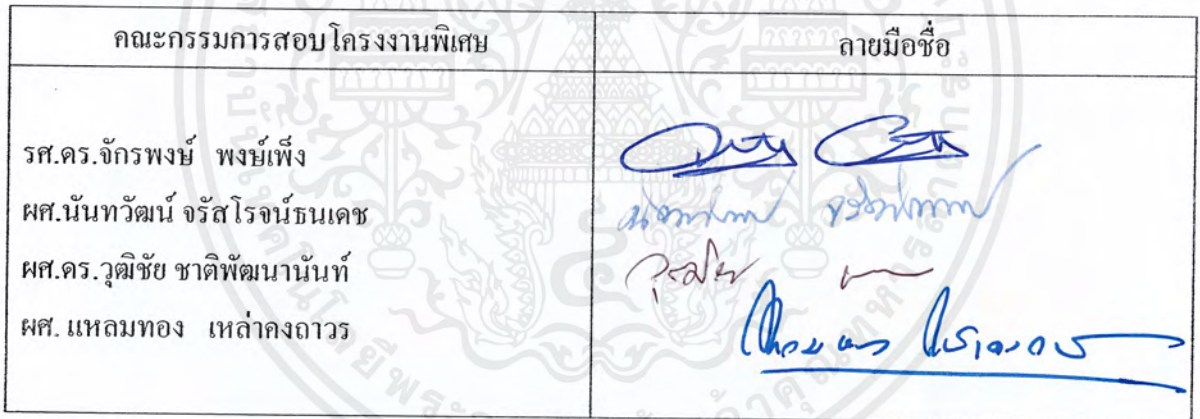 คณะกรรมการสอบโครงงานพิเศษ ลายมือชื่อ
รศ.ดร.จักรพงษ์ พงษ์เพ็ง
ผศ.นันทวัฒน์ จรัสโรจน์ธนเดช
ผศ.ดร.วุฒิชัย ชาติพัฒนานันท์
ผศ. แหลมทอง เหล่าคงถาวร